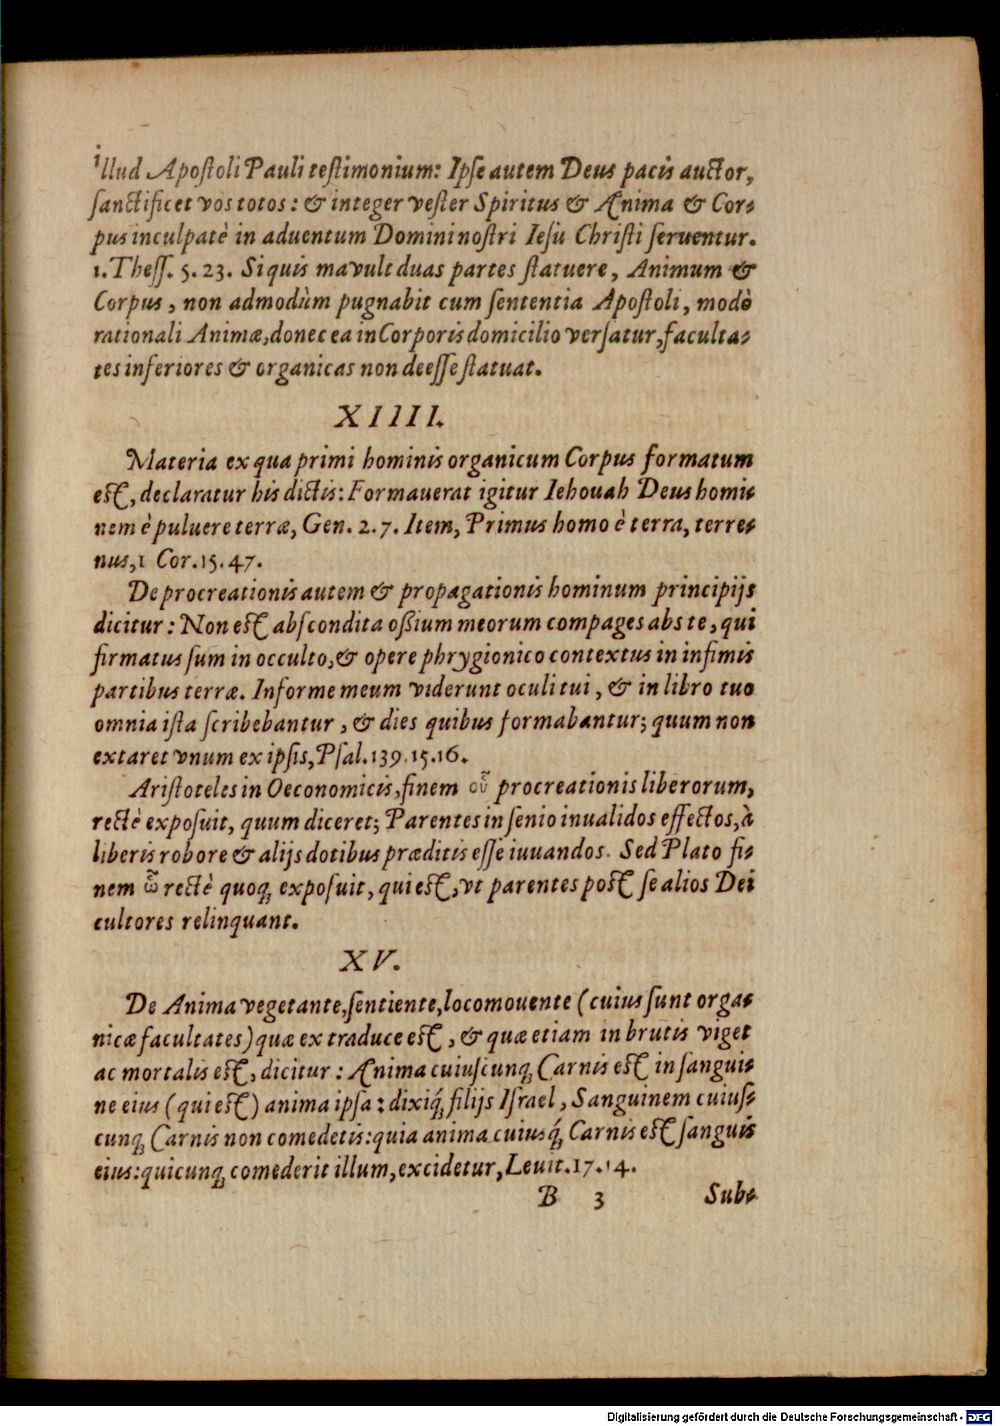 illud Apostoli Pauli testimonium: Ipse autem Deus pacis auctor,
sanctificet vos totos: & integer vester Spiritus & Ænima & Cor-
pus inculpatè in aduentum Domini nostri Iesu Christi seruentur.
1. Thess. 5. 23. Si quis mavult duas partes statuere, Animum &
Corpus, non admodùm pugnabit cum sententia Apostoli, modò
rationali Animæ, donec ea in Corporis domicilio versatur, faculta-
tes inferiores & organicas non deesse statuat.
XIIII.
Materia ex qua primi hominis organicum Corpus formatum
est, declaratur his dictis: Formauerat igitur Iehouah Deus homi-
nem è puluere terræ, Gen. 2. 7. Item, Primus homo è terra, terre-
nus, 1 Cor. 15. 47.
De procreationis autem & propagationis hominum principijs
dicitur: Non est abscondita oßium meorum compages abs te, qui
firmatus sum in occulto, & opere phrygionico contextus in infimis
partibus terræ. Informe meum viderunt oculi tui, & in libro tuo
omnia ista scribebantur, & dies quibus formabantur; quum non
extaret vnum ex ipsis, Psal. 139. 15. 16.
Aristoteles in Oeconomicis, finem procreationis liberorum,
rectè exposuit, quum diceret; Parentes in senio inualidos effectos, à
liberis robore & alijs dotibus præditis esse iuuandos. Sed Plato fi-
nem rectè quoq; exposuit, qui est, vt parentes post se alios Dei
cultores relinquant.
XV.
De Anima vegetante, sentiente, locomouente (cuius sunt orga-
nicæ facultates) quæ ex traduce est, & quæ etiam in brutis viget
ac mortalis est, dicitur: Ænima cuiuscunq; Carnis est in sangui-
ne eius (qui est) anima ipsa: dixiq́; filijs Israel, Sanguinem cuius-
cunq; Carnis non comedetis: quia anima cuiusq́; Carnis est sanguis
eius: quicunq; comederit illum, excidetur, Leuit. 17. 14.
B 3 Sub-
Digitalisierung gefördert durch die Deutsche Forschungsgemeinschaft - DFG